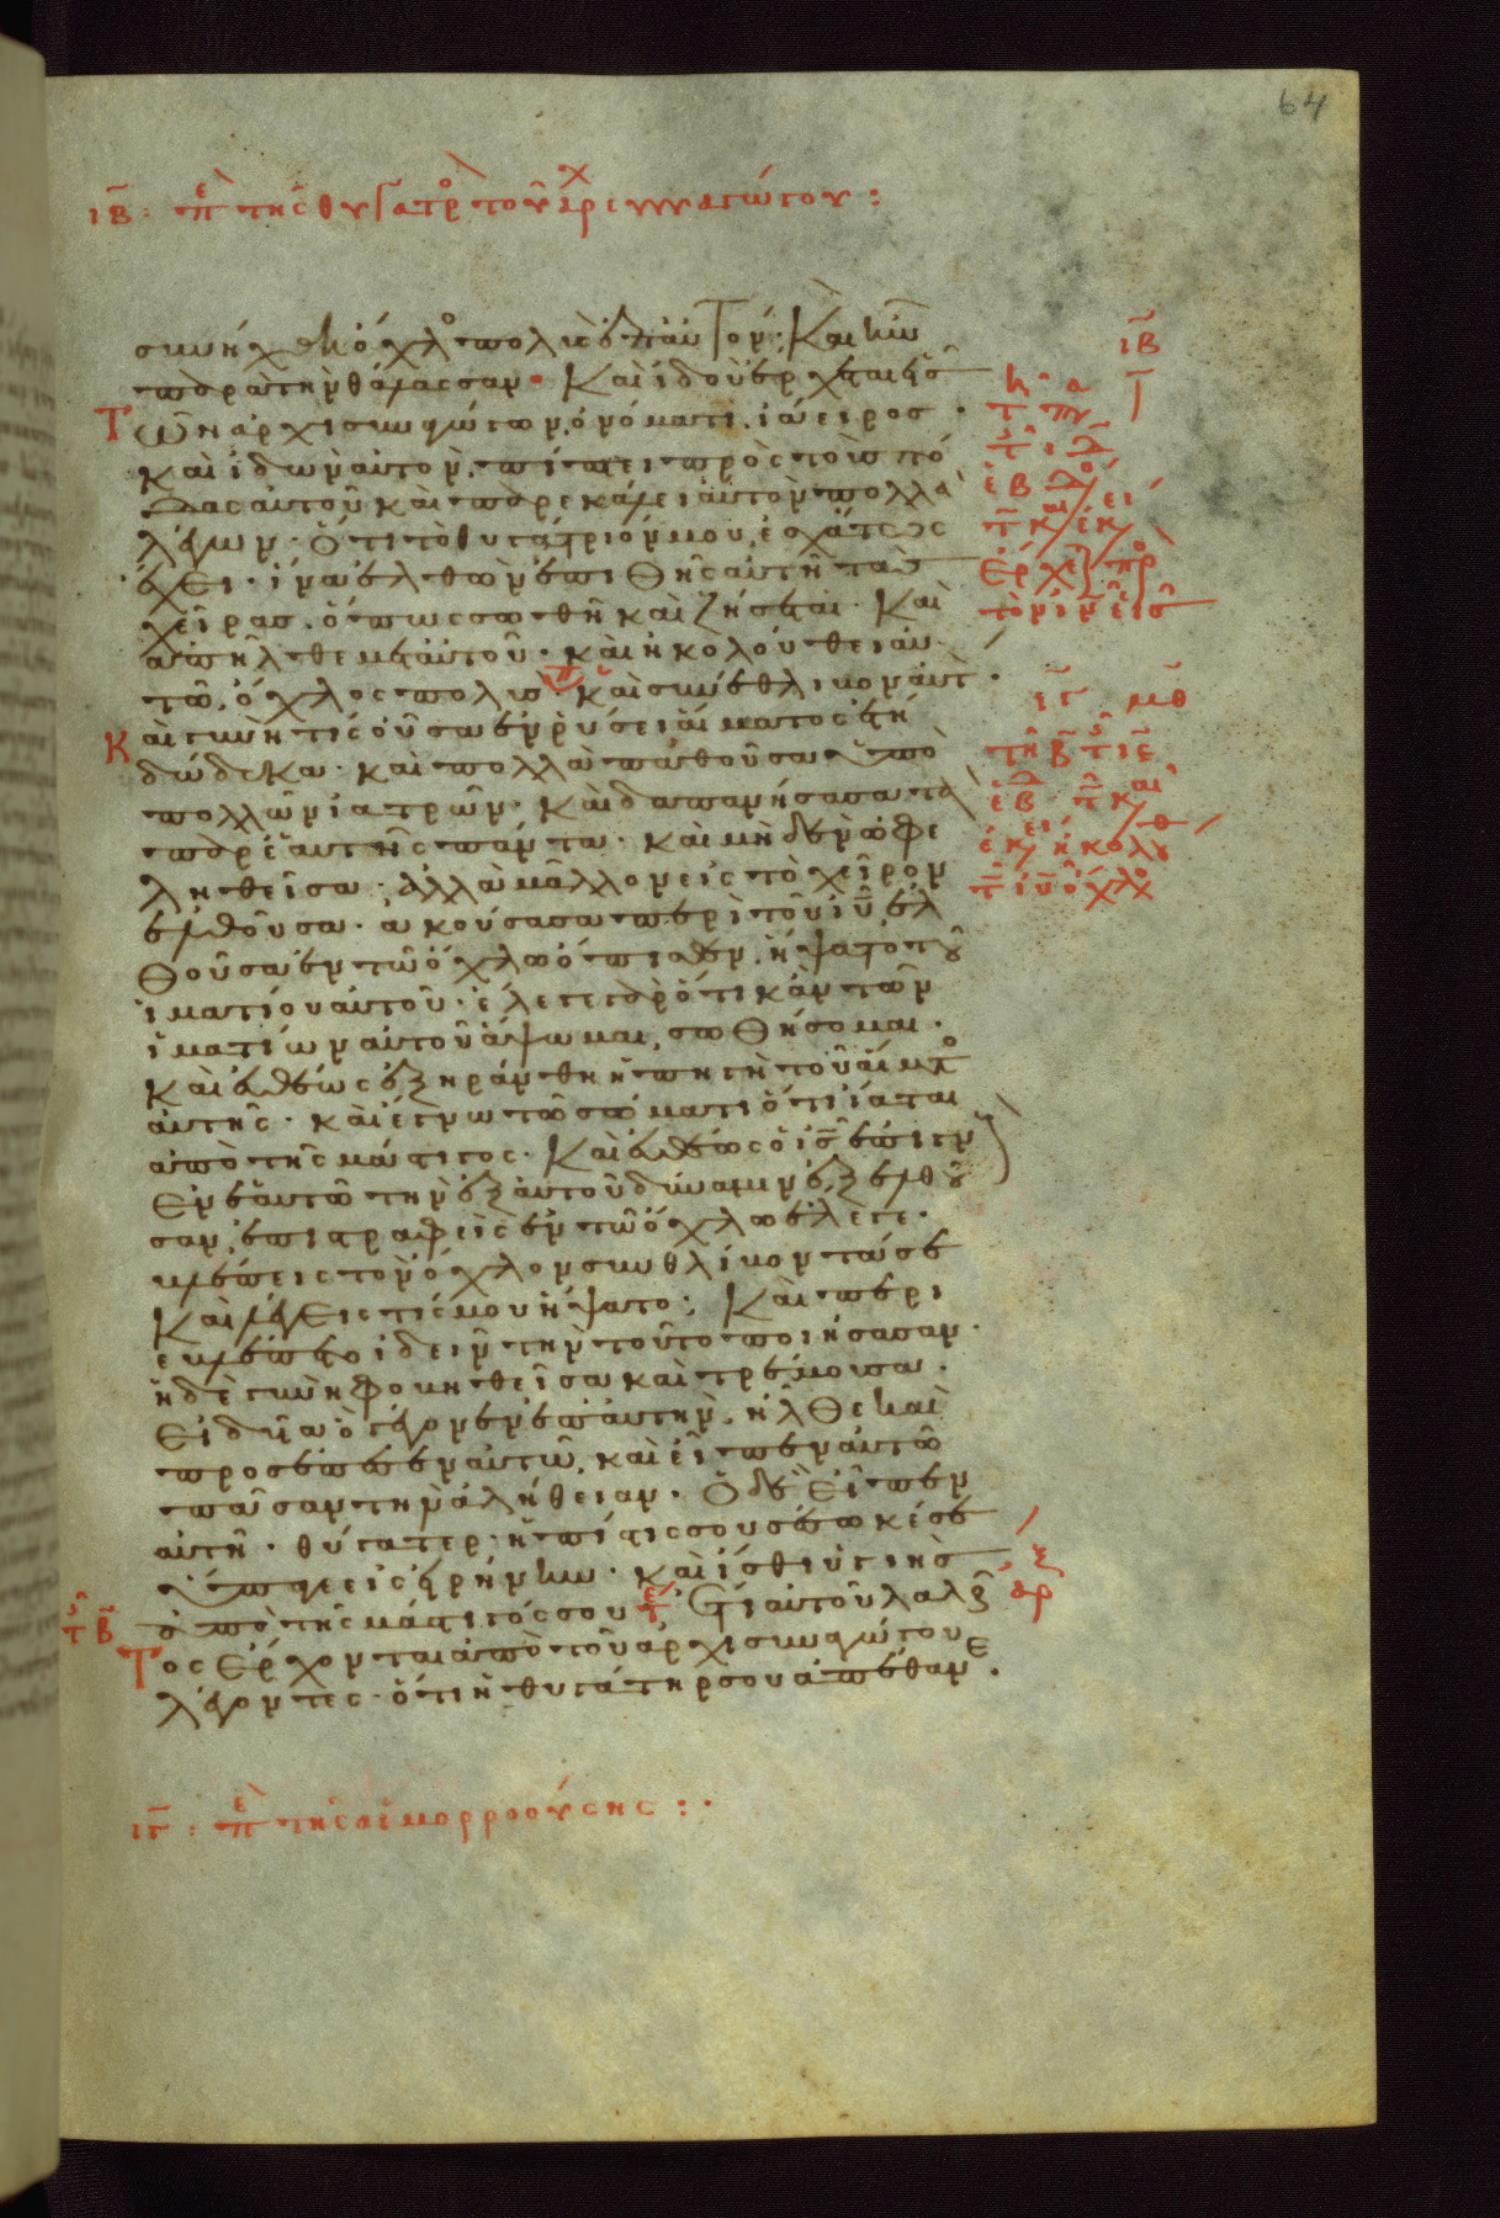 64
ιβ : πε της θυγατρ του αρχισυναγωγου :
συνήχθη όχλος πολὺς ἐπ' αὐτόν· Καὶ ἦν
παρὰ τὴν θάλασσαν· Καὶ ἰδοὺ ἔρχεται εἷς
Τῶν ἀρχισυναγώγων, ὀνόματι ἰάειρος·
καὶ ἰδὼν αὐτὸν, πίπτει πρὸς τοὺς πό
δας αὐτοῦ καὶ παρεκάλει αὐτὸν πολλὰ
λέγων· Ὅτι τὸ θυγάτριόν μου, ἐσχάτως
ἔχει· ἵνα ἐλθὼν ἐπιθῆς αὐτῆ τὰς
χεῖρας· ὅπως σωθῆ καὶ ζήσεται· Καὶ
ἀπῆλθε μετ' αὐτοῦ· καὶ ἠκολούθει αὐ
τῶ, ὄχλος πολύς· καὶ συνέθλιβον αὐτ·
Καὶ γυνή τίς οὖσα ἐν ρύσει αἵματος ἔτη
δώδεκα· καὶ πολλὰ παθοῦσα ὑπὸ
πολλῶν ἰατρῶν· Καὶ δαπανήσασα τὰ
παρ' ἑαυτῆς πάντα· καὶ μηδὲν ὠφε
ληθεῖσα· ἀλλὰ μᾶλλον εἰς τὸ χεῖρον
ἐλθοῦσα· ἀκούσασα περὶ τοῦ ἰῦ, ἐλ
θοῦσα ἐν τῶ ὄχλω ὄπισθεν, ἥψατο τοῦ
ἱματίου αὐτοῦ· ἔλεγε γὰρ ὅτι κἂν τῶν
ἱματίων αὐτοῦ ἅψωμαι, σωθήσομαι·
Καὶ εὐθέως ἐξηράνθη ἡ πηγὴ τοῦ αἵματος
αὐτῆς· καὶ ἔγνω τῶ σώματι ὅτι ἴαται
ἀπὸ τῆς μάστιγος· Καὶ εὐθέως ὁ ἰς ἐπιγν
ἐν ἑαυτῶ τὴν ἐξ αὐτοῦ δύναμιν ἐξελθοῦ
σαν, ἐπιστραφεὶς ἐν τῶ ὄχλω ἔλεγε·
βλέπεις τὸν ὄχλον συνθλίβοντά σε
Καὶ λέγεις τίς μου ἥψατο; Καὶ περι
εβλέπετο ἰδεῖν τὴν τοῦτο ποιήσασαν·
ἡ δὲ γυνὴ φοβηθεῖσα καὶ τρέμουσα·
Εἰδυῖα ὃ γέγονεν ἐπ' αὐτὴν, ἦλθε καὶ
προσέπεσεν αὐτῶ, καὶ εἶπεν αὐτῶ
πᾶσαν τὴν ἀλήθειαν· Ὁ δὲ εἶπεν
αὐτῆ· θύγατερ· ἡ πίστις σου σέσωκέ σε
ὕπαγε εἰς εἰρήνην· καὶ ἴσθι ὑγιὴς
ἀπὸ τῆς μάστιγός σου· Ἔτι αὐτοῦ λαλοῦν
Τος Ἔρχονται ἀπὸ τοῦ ἀρχισυναγώγου
λέγοντες· ὅτι ἡ θυγάτηρ σου ἀπέθανε·
ιγ : πε της αἱμορροούσης :·
ιβ
ιγ μθ